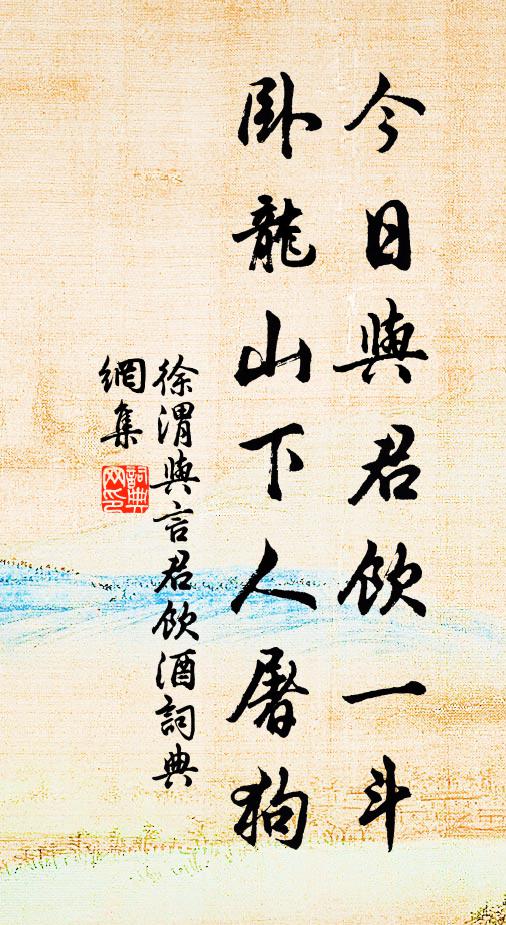 今日與君飲一斗
臥龍山下人屠狗
徐渭與言君飲酒詞典
網集
詞典
网印